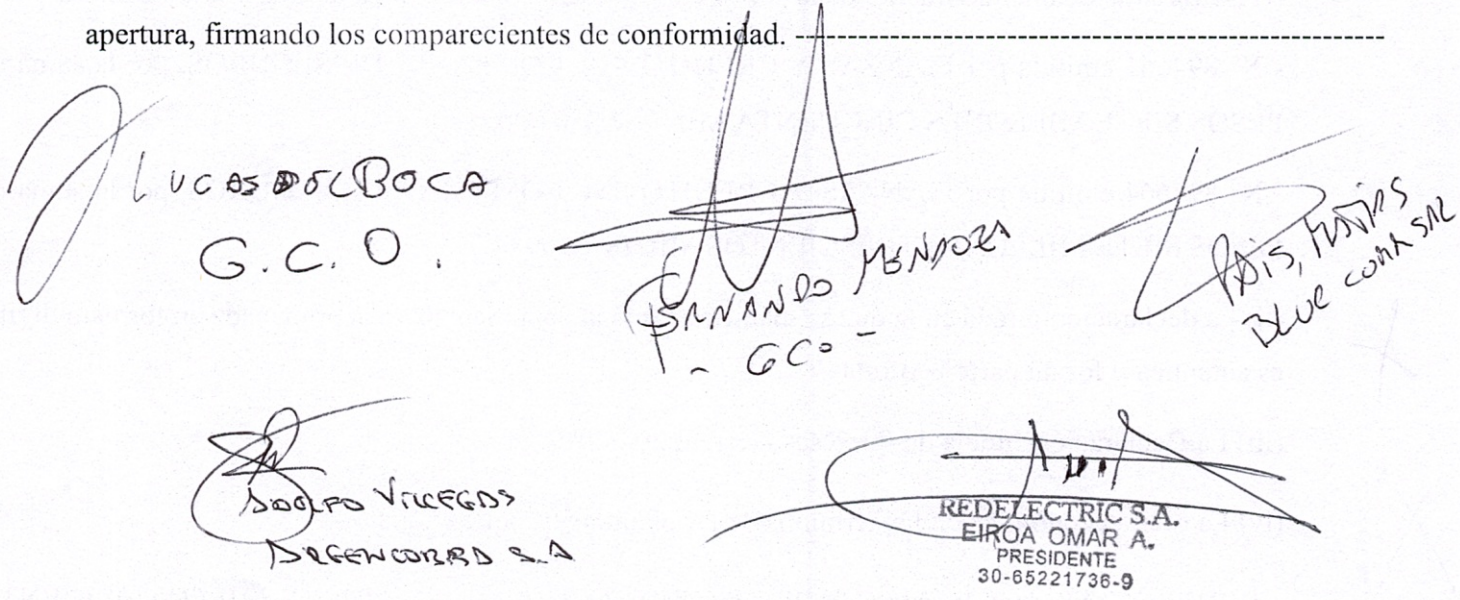 apertura, firmando los comparecientes de conformidad. ----------
LUCAS DELBOCA
G.C.O.
FERNANDO MENDOZA
- GCO -
PAIS, MATIAS
BLUE CORA SRL
ADOLFO VILLEGAS
ARGENCOBRA S.A
REDELECTRIC S.A.
EIROA OMAR A.
PRESIDENTE
30-65221736-9